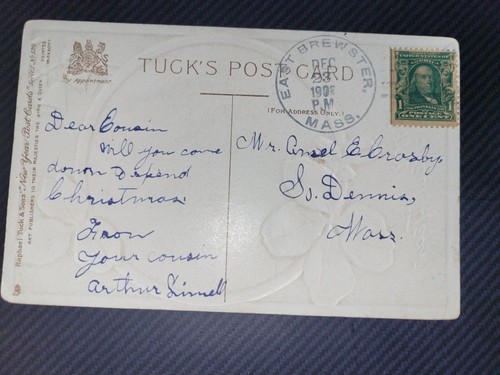 By Appointment.
TUCK'S POST CARD
(For Address Only.)
Raphael Tuck & Sons' "New Year" Post Cards
ART PUBLISHERS TO THEIR MAJESTIES THE KING & QUEEN
EAST BREWSTER,
DEC
23
P.M.
MASS.
1
1
ONE CENT
Dear Cousin
Will you come
down & spend
Christmas
From
Your cousin
Arthur
Mr. Ansel E. Crosby
So. Dennis,
Mass.